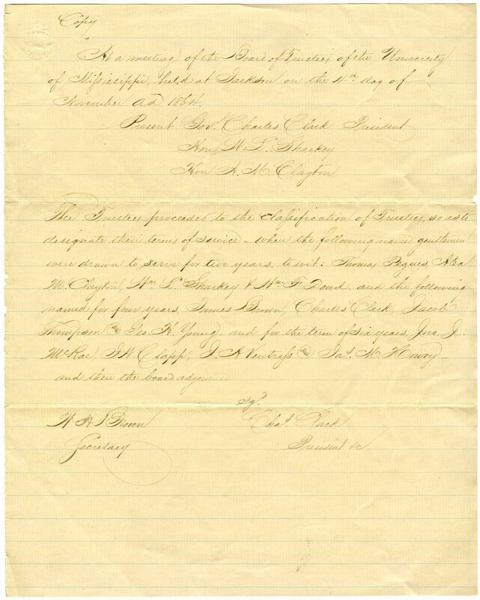 Copy
At a meeting of the Board of Trustees of the University
of Mississippi, held at Jackson on the 4th day of
November A.D. 1864.
Present Gov. Charles Clark President
Hon W. L. Sharkey
Hon A. M. Clayton
The Trustees proceeded to the classification of Trustees, so as to
designate their terms of service - when the following gentlemen
were drawn to serve for two years, to wit: Thomas Pegues Alex
M. Clayton, Wm L. Sharkey & Wm F. Dowd and the following
named for four years, James Brown, Charles Clark, Jacob
Thompson & Geo. H. Young and for the term of six years, Jno. J.
McRae J. W. Clapp, J. A Ventress & Jas. M. Howry
and then the board adjourned
Sgd.
Brown Chas. Clark
Secretary President &c